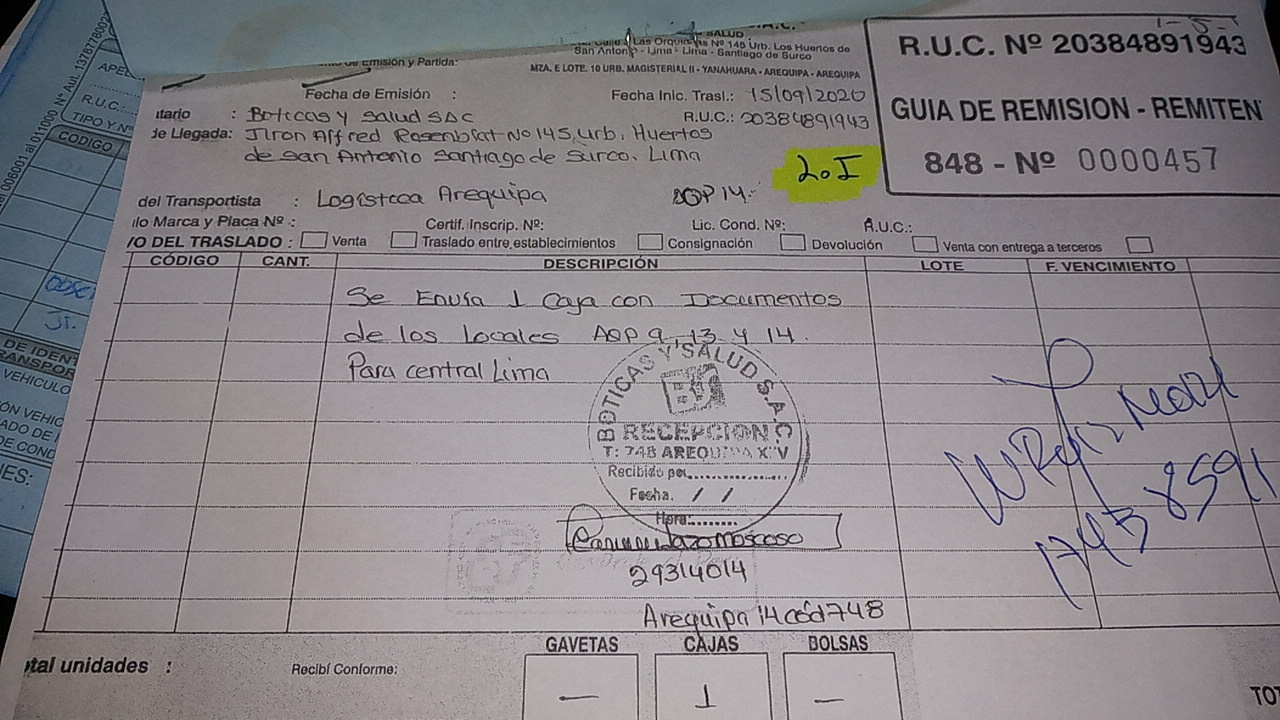 SALUD
Las Orquideas Nº 145 Urb. Los Huertos de
San Antonio - Lima - Lima - Santiago de Surco
de Emisión y Partida:
MZA. E LOTE. 10 URB. MAGISTERIAL II - YANAHUARA - AREQUIPA - AREQUIPA
Fecha de Emisión :
Fecha Inic. Trasl.: 15/09/2020
itario : Boticas y Salud SAC
R.U.C.: 20384891943
de Llegada: Jiron Alfred Rosenblat Nº 145, urb. Huertos
de San Antonio Santiago de Surco. Lima
L.o I
1-5-1
R.U.C. Nº 20384891943
GUIA DE REMISION - REMITEN
848 - Nº 0000457
del Transportista : Logística Arequipa
AQP 14.
Marca y Placa Nº :
Certif. Inscrip. Nº:
Lic. Cond. Nº:
R.U.C.:
/O DEL TRASLADO :
Venta
Traslado entre establecimientos
Consignación
Devolución
Venta con entrega a terceros
CÓDIGO CANT. DESCRIPCIÓN LOTE F. VENCIMIENTO
Se Envía 1 Caja con Documentos
de los locales AQP 9, 13 y 14.
Para central Lima
BOTICAS Y SALUD S.A.C
RECEPCION
T: 748 AREQUIPA XIV
Recibido por
Fecha. / /
Hora:
29314014
Arequipa 14 cód 748
GAVETAS CAJAS BOLSAS
— 1 —
tal unidades :
Recibí Conforme:
TOT
Nº Aut. 1378778002
008001 al 011000
APEL
R.U.C.
TIPO Y Nº
CÓDIGO
Ji.
DE IDENT
TRANSPOR
VEHICULO
ÓN VEHIC
DE COND
NES: